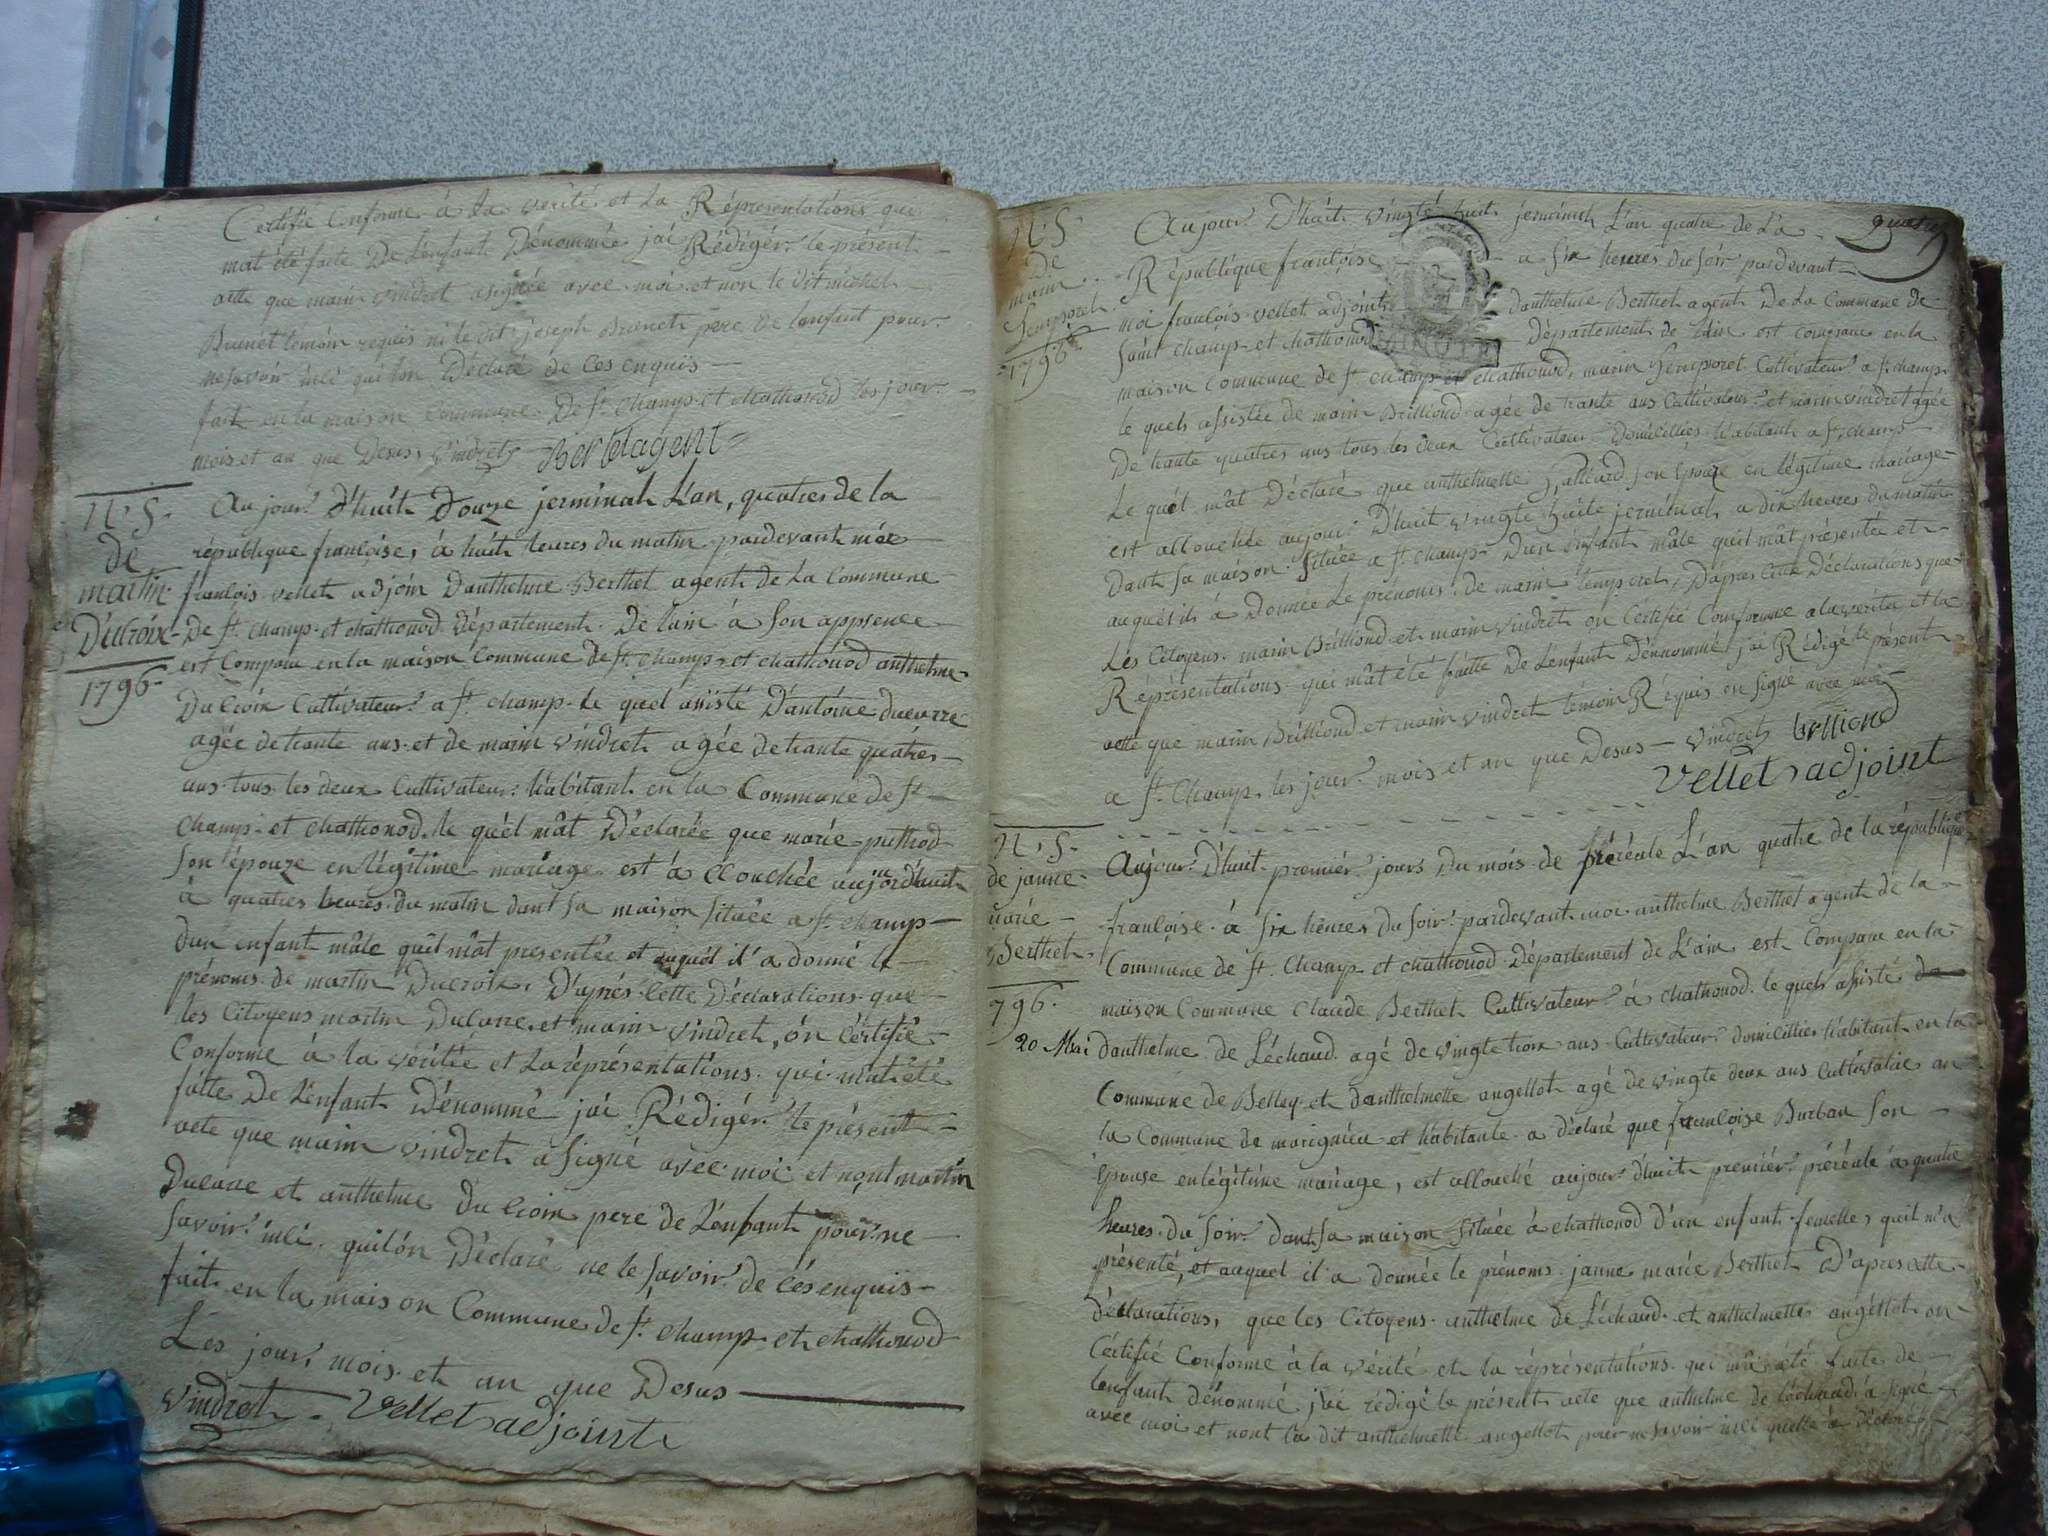 Certifié Conforme à la verité et La Réprésentations qui
mat été faite De L'enfant Dénommée jai Rédigér le présent
acte que marin vindret asignée avec moi et non le dit michel
Brunet temoin requis ni le dit joseph Brunet pere de lenfant pour
ne savoir insi qui lon Déclaré de Ces enquis
fait en la maison Commune De St Champ et chathonod les jour
mois et an que Desus Vindret Berthet agent
N. S.
de
martin
Ducroix
1796
Au jour D'huit Douze jerminah L'an quatres de la
république françoise, à huit heures du matin pardevant moi
françois vellet adjoin Danthelme Berthet agent de La Commune
De St Champ et chathonod Département De Lain à Son appsence
est Comparu en la maison Commune de St Champ et chathonod anthelme
DuCroix Cultivateur a St Champ le quel assisté D'antoine ducurre
agée de trante ans et de marin vindret agée de trante quatres
ans tous les deux Cultivateur habitant en la Commune de St
Champ et chathonod le quél mât Déclarée que marie puthod
son épouze en légitime mariage est à Couchée aujourd'huit
à quatres heures du matin dant sa maison Située a St Champ
dun enfant mâle quél mât presentée et auquél il a donné le
prénoms de martin Ducroix, D'après Cette Déclarations que
les Citoyens martin Ducurre et marin vindret, on Cértifié
Conforme à la véritée et La réprésentations qui mat été
faitte De L'enfant Dénommé jai Rédigér le présent
acte que marin vindret a Signé avec moi et nont martin
Ducurre et anthelme DuCroix pere de L'enfant pour ne
savoir insi quilon Déclaré ne le savoir de Cés enquis
fait en la maison Commune de St Champ et chathonod
Les jour mois et an que Desus
Vindret Vellet adjoint
quatre
N. S
De
marin
Semporet
1796
Aujour D'huit vingté huit jerminah L'an quatre de La
République françoise a Six heures du Soir pardevant
moi françois vellet adjoint Danthelme Berthet agent De La Commune de
saint Champ et chathonod Département de Lain est comparu en la
maison Commune de St Champ et chathonod, marin Semporet Cultivateur a St Champ
le quels assistée de marin Brilliond agée de trante ans Cultivateur et marin vindret agée
De trante quatres ans tous les deux Cultivateur Domicilliés habitant a St Champ
Le quél mât Déclaré que anthelmette Son épouze en légitime mariage
est accouchée aujour D'huit vingte huite jerminah a dix heures du matin
Dant sa maison Située a St Champ Dun enfant mâle quél mât présentée et
auquél il à Donnée Le prénoms de marin Semporet, D'apres Cette Déclarations que
Lés Citoyens marin Brilliond et marin vindret on Cértifié Conforme a la véritée et la
Réprésentations qui mât été faitte De L'enfant Dénommé jai Rédigé le présent
acte que marin Brilliond et marin vindret témoin Réquis on signé avec moi
a St Champ les jour mois et an que Desus Vindret brilliond
Vellet adjoint
N. S.
de janne
marie
Berthet
796
20 Mai
Aujour D'huit premiér jours Du mois de préréale L'an quatre de la république
françoise à Six heures du Soir pardevant moi anthelme Berthet agent de la
Commune de St Champ et chathonod Département de L'ain est Comparu en la
maison Commune Claude Berthet Cultivateur à chathonod le quels assisté de
danthelme de Léchaud agé de vingte trois ans Cultivateur domicilliés habitant en la
Commune de Belley et danthelmette angellot agé de vingte deux ans Cultivatric en
la Commune de marignieu et habitante a déclaré que françoise Burban Son
épouse en légitime mariage, est accouché aujour d'huit premiér préréale a quatre
heures du Soir dant sa maison Située à chathonod D'un enfant femelle, quil m'a
présenté, et auquel il a donnée le prénoms janne marie Berthet D'apres cette
déclarations, que les Citoyens anthelme de Léchaud et anthelmette angellot on
Cértifié Conforme à la vérité et la réprésentations qui mât été faite de
lenfant dénommé j'ai rédigé le présent acte que anthelme de Léchaud a signé
avec moi et nont la dit anthelmette angellot pour ne savoir insi quelle a déclaré